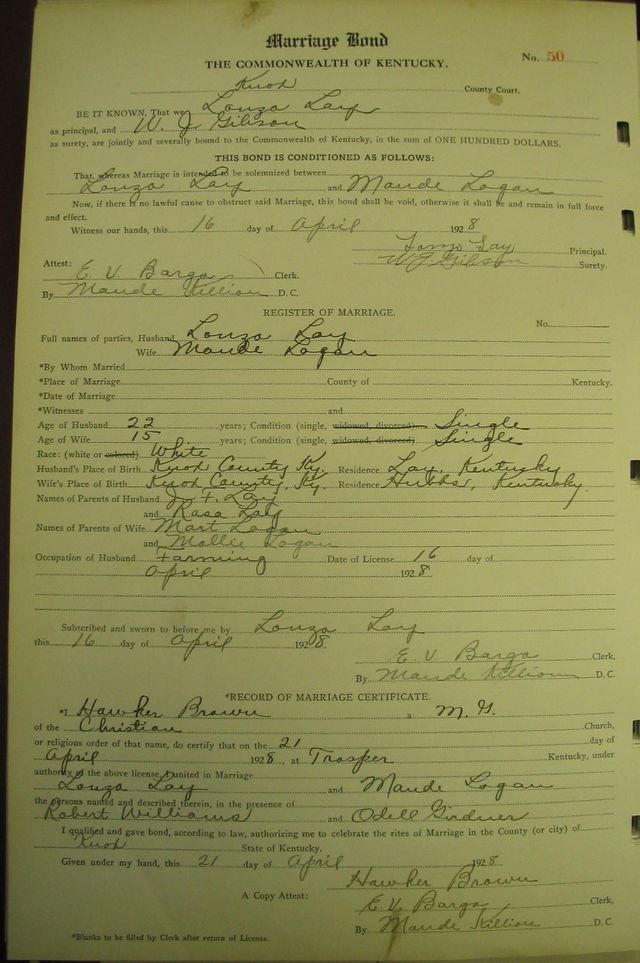 Marriage Bond
THE COMMONWEALTH OF KENTUCKY.
No. 50
Knox County Court.
BE IT KNOWN, That we, Lonzo Lay
as principal, and W. J. Gibson
as surety, are jointly and severally bound to the Commonwealth of Kentucky, in the sum of ONE HUNDRED DOLLARS.
THIS BOND IS CONDITIONED AS FOLLOWS:
That, whereas Marriage is intended to be solemnized between
Lonzo Lay and Maude Logan
Now, if there is no lawful cause to obstruct said Marriage, this bond shall be void, otherwise it shall be and remain in full force
and effect.
Witness our hands, this 16 day of April 1928
Lonzo Lay Principal.
W J Gibson Surety.
Attest:
E. V. Barga Clerk.
By Maude Killion D. C.
REGISTER OF MARRIAGE.
No.
Full names of parties, Husband Lonzo Lay
Wife Maude Logan
*By Whom Married
*Place of Marriage County of Kentucky.
*Date of Marriage
*Witnesses and
Age of Husband 22 years; Condition (single, widowed, divorced) Single
Age of Wife 15 years; Condition (single, widowed, divorced) Single
Race: (white or colored) White
Husband's Place of Birth Knox County Ky. Residence Lay, Kentucky
Wife's Place of Birth Knox County, Ky. Residence Hubbs, Kentucky
Names of Parents of Husband J. F. Lay
and Rasa Lay
Names of Parents of Wife Mart Logan
and Mollie Logan
Occupation of Husband Farming Date of License 16 day of
April 1928
Subscribed and sworn to before me by Lonzo Lay
this 16 day of April 1928
E. V. Barga Clerk,
By Maude Killion D. C.
*RECORD OF MARRIAGE CERTIFICATE.
*I Hawker Brown a M. G.
of the Christian Church,
or religious order of that name, do certify that on the 21 day of
April 1928, at Trosper Kentucky, under
authority of the above license, I united in Marriage
Lonzo Lay and Maude Logan
the persons named and described therein, in the presence of
Robert Williams and Odell Girdner
I qualified and gave bond, according to law, authorizing me to celebrate the rites of Marriage in the County (or city) of
Knox State of Kentucky.
Given under my hand, this 21 day of April 1928
Hawker Brown
A Copy Attest: E. V. Barga Clerk,
By Maude Killion D. C.
*Blanks to be filled by Clerk after return of License.